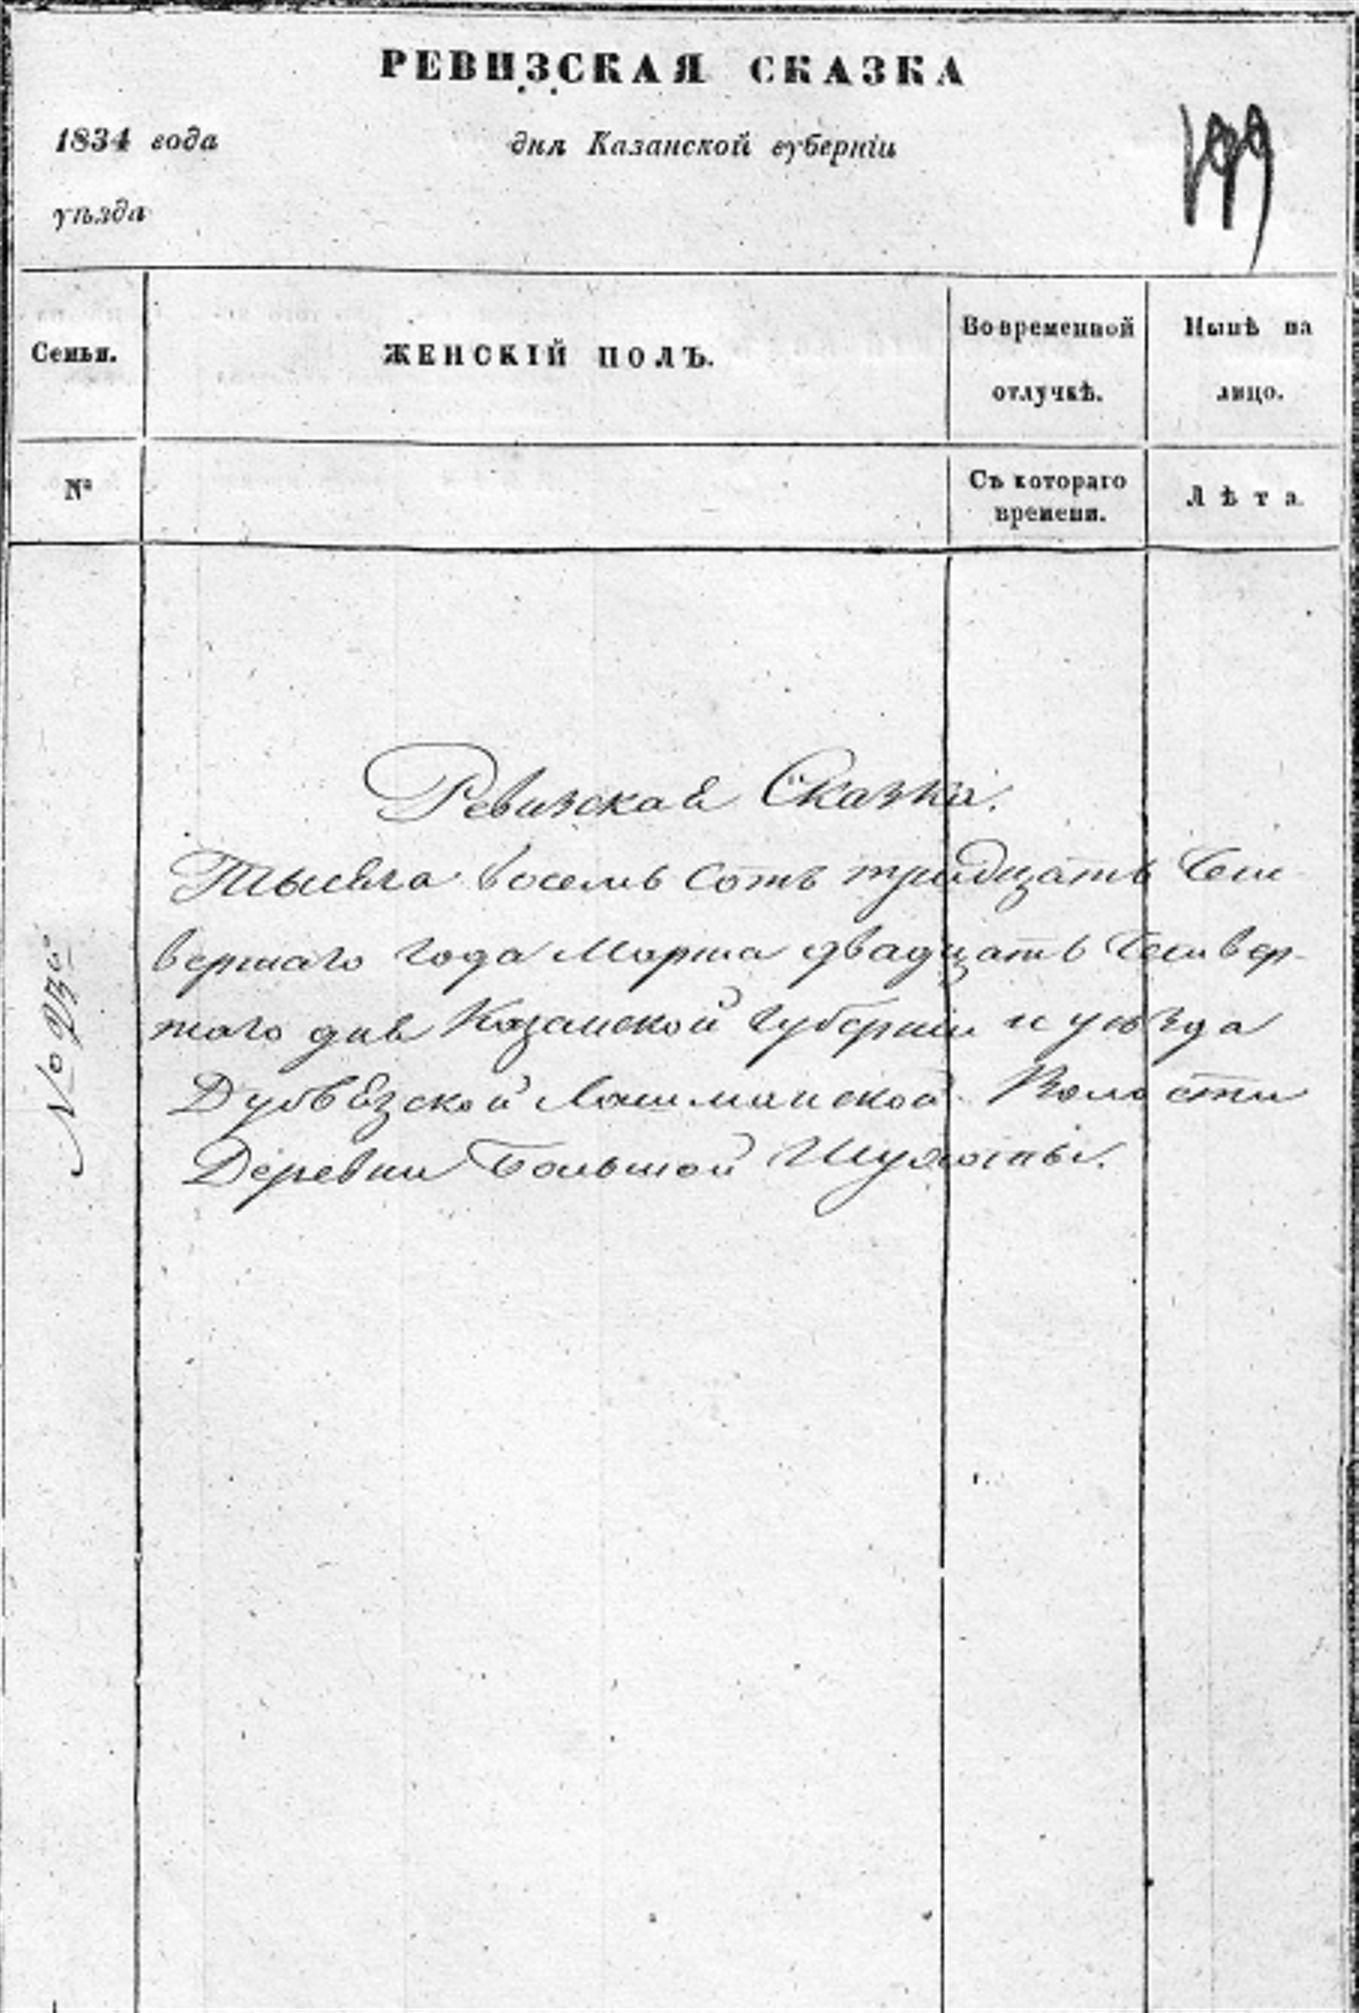 РЕВИЗСКАЯ СКАЗКА
1834 года дня Казанской губерніи
уѣзда
199
Семьи.
ЖЕНСКІЙ ПОЛЪ.
Во временной
отлучкѣ.
Нынѣ на
лицо.
№
Съ котораго
времени.
Лѣта.
Ревизская Сказка.
Тысяча восемь сотъ тридцать Чет-
вертаго года Марта двадцать Четвер-
таго дня Казанской Губерніи и уѣзда
Дубъязской Лашманской Волости
Деревни Большой Шухоты.